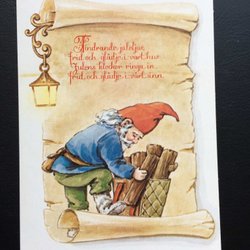 Tindrande juleljus
frid och glädje i vårt hus
Julens klockor ringa in
frid och glädje i vårt sinn